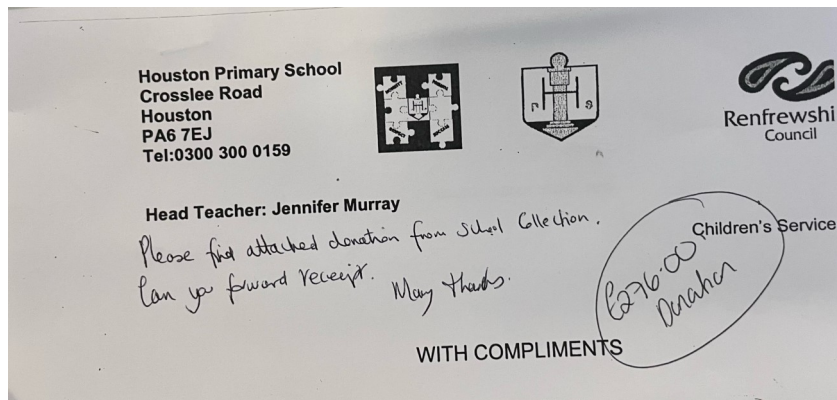 Houston Primary School
Crosslee Road
Houston
PA6 7EJ
Tel:0300 300 0159
H
H
P S
Renfrewshi
Council
Head Teacher: Jennifer Murray
Children's Service
Please find attached donation from School Collection.
Can you forward receipt. Many thanks.
£276.00
Donation
WITH COMPLIMENTS